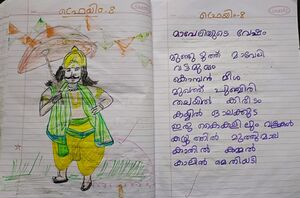 ഫ്രെയിം-8
ഫ്രെയിം-8
മാവേലിയുടെ വേഷം
വട്ടമുഖം
കൊമ്പൻ മീശ
മുഖത്ത് പുഞ്ചിരി
തലയിൽ കിരീടം
കയ്യിൽ ഓലക്കുട
ഇരു കൈകളിലും വളകൾ
കഴുത്തിൽ മുത്തുമാല
കാതിൽ കമ്മൽ
കാലിൽ മെതിയടി